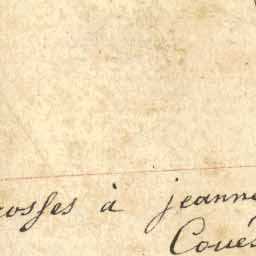 rosses à jeanne
Coués